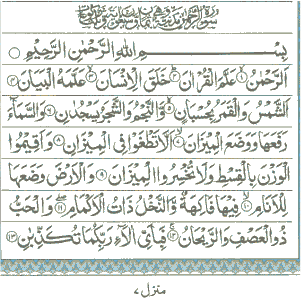 سورة الرحمن مدنية وهي ثمان وسبعون آية
بِسْمِ اللهِ الرَّحْمٰنِ الرَّحِيْمِ
اَلرَّحْمٰنُ ۝١ عَلَّمَ الْقُرْاٰنَ ۝٢ خَلَقَ الْاِنْسَانَ ۝٣ عَلَّمَهُ الْبَيَانَ ۝٤
اَلشَّمْسُ وَالْقَمَرُ بِحُسْبَانٍ ۝٥ وَّالنَّجْمُ وَالشَّجَرُ يَسْجُدٰنِ ۝٦ وَالسَّمَآءَ
رَفَعَهَا وَوَضَعَ الْمِيْزَانَ ۝٧ اَلَّا تَطْغَوْا فِى الْمِيْزَانِ ۝٨ وَاَقِيْمُوا
الْوَزْنَ بِالْقِسْطِ وَلَا تُخْسِرُوا الْمِيْزَانَ ۝٩ وَالْاَرْضَ وَضَعَهَا
لِلْاَنَامِ ۝١٠ فِيْهَا فَاكِهَةٌ وَّالنَّخْلُ ذَاتُ الْاَكْمَامِ ۝١١ وَالْحَبُّ
ذُو الْعَصْفِ وَالرَّيْحَانُ ۝١٢ فَبِاَىِّ اٰلَآءِ رَبِّكُمَا تُكَذِّبٰنِ ۝١٣
منزل ٧